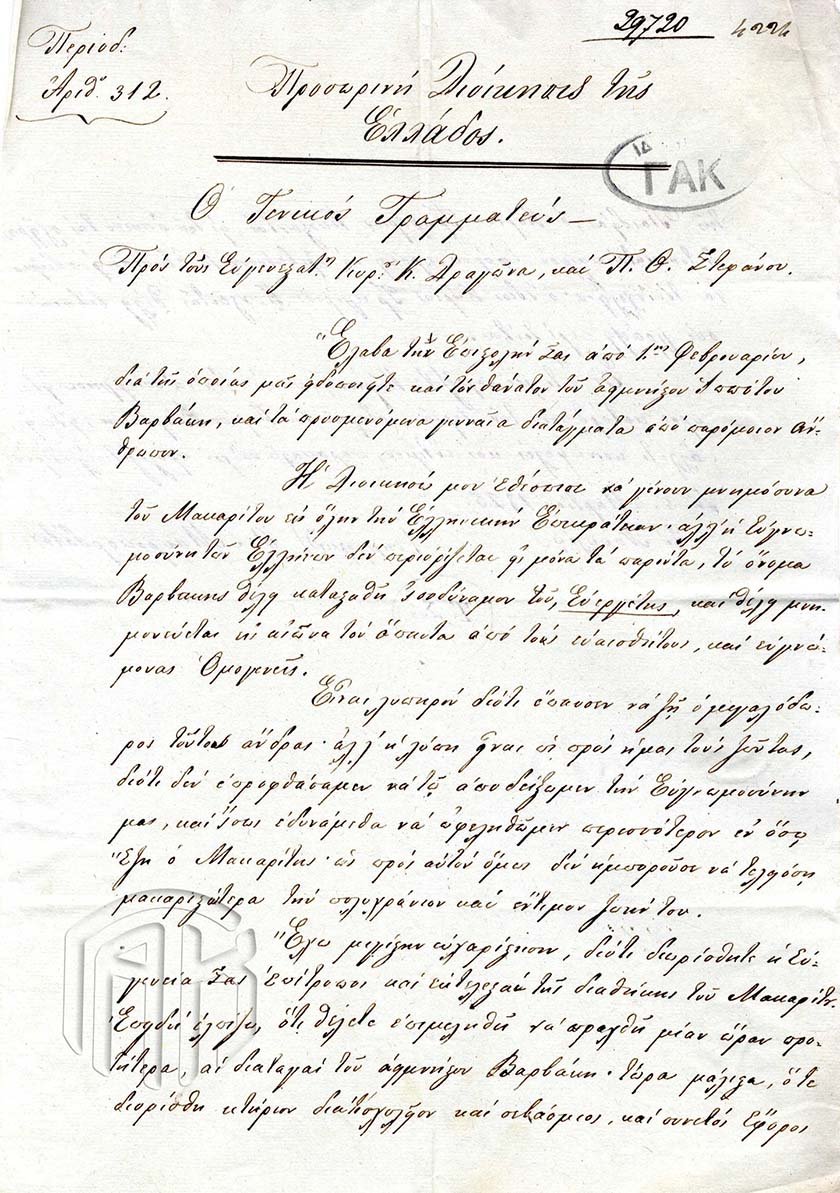 29720 4224
Περίοδ:
Ἀριθ. 312.
Προσωρινὴ Διοίκησις τῆς
Ἑλλάδος.
ΓΑΚ
Ὁ Γενικὸς Γραμματεὺς —
Πρὸς τοὺς Εὐγενεστάτ. Κυρ. Κ. Δραγῶνα, καὶ Π. Θ. Στεφάνου.
Ἔλαβα τὴν Ἐπιστολήν Σας ἀπὸ 1ης Φεβρουαρίου,
διὰ τῆς ὁποίας μᾶς εἰδοποιεῖτε καὶ τὸν θάνατον τοῦ ἀειμνήστου Ἱππότου
Βαρβάκη, καὶ τὰ προσμενόμενα γενναῖα διατάγματα ἀπὸ παρόμοιον ἄν-
θρωπον.
Ἡ Διοίκησίς μου ἐθέσπισε νὰ γένουν μνημόσυνα
τοῦ Μακαρίτου εἰς ὅλην τὴν Ἑλληνικὴν Ἐπικράτειαν· ἀλλ' ἡ εὐγνω-
μοσύνη τῶν Ἑλλήνων δὲν περιορίζεται εἰς μόνα τὰ παρόντα, τὸ ὄνομα
Βαρβάκης θέλει κατασταθῆ ἰσοδύναμον τοῦ, Εὐεργέτης, καὶ θέλει μνη-
μονεύεται εἰς αἰῶνα τὸν ἅπαντα ἀπὸ τοὺς εὐαισθήτους, καὶ εὐγνώ-
μονας Ὁμογενεῖς.
Εἶναι λυπηρὸν διότι ἔπαυσεν νὰ ζῇ ὁ μεγαλόδω-
ρος τοῦτος ἄνδρας· ἀλλ' ἡ λύπη εἶναι ὡς πρὸς ἡμᾶς τοὺς ζῶντας,
διότι δὲν ἐπροφθάσαμεν νὰ τῷ ἀποδείξωμεν τὴν Εὐγνωμοσύνην
μας, καὶ ἴσως ἐδυνάμεθα νὰ ὠφεληθῶμεν περισσότερον ἐν ὅσῳ
ἔζη ὁ Μακαρίτης· ὡς πρὸς αὐτὸν ὅμως δὲν ἠμποροῦσε νὰ τελειώσῃ
μακαριστότερα τὴν πολυχρόνιον καὶ ἔντιμον ζωήν του.
Ἔχω μεγίστην εὐχαρίστησιν, διότι διωρίσθητε ἡ Εὐ-
γενεία Σας ἐπίτροποι καὶ ἐκτελεσταὶ τῆς διαθήκης τοῦ Μακαρίτ.
Ἐπειδὴ ἐλπίζω, ὅτι θέλετε ἐπιμεληθῆ νὰ πραχθῇ μίαν ὥραν προ-
τήτερα, αἱ διαταγαὶ τοῦ ἀειμνήστου Βαρβάκη· τώρα μάλιστα, ὅτε
διορίσθη κτίριον διὰ τὸ σχολεῖον καὶ σεβάσμιος, καὶ συνετὸς Ἔφορος